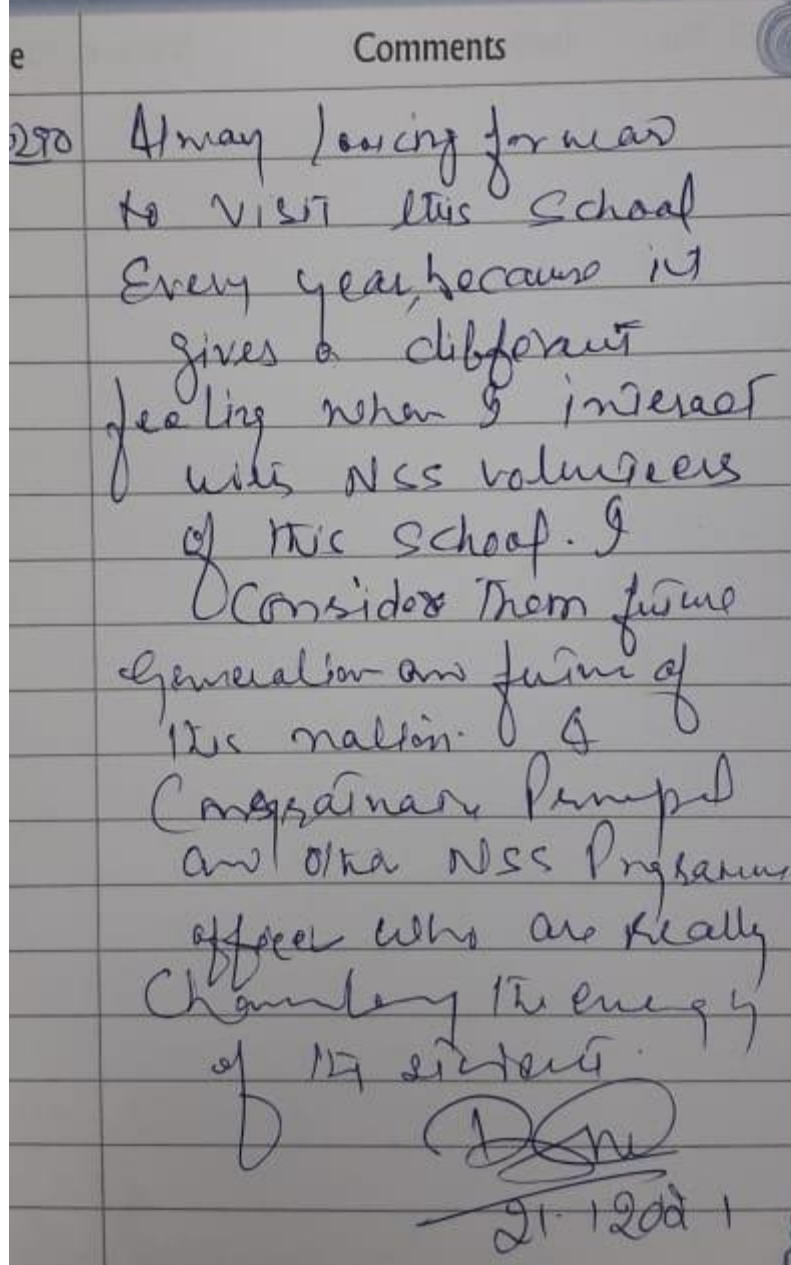 e Comments
290 Alway looking forward
to visit this School
Every year, because it
gives a different
feeling when I interact
with NSS volunteers
of this School. I
Consider them future
Generation and future of
this nation. I
Congratulate Principal
and other NSS Programme
officer who are really
the energy
of the student.